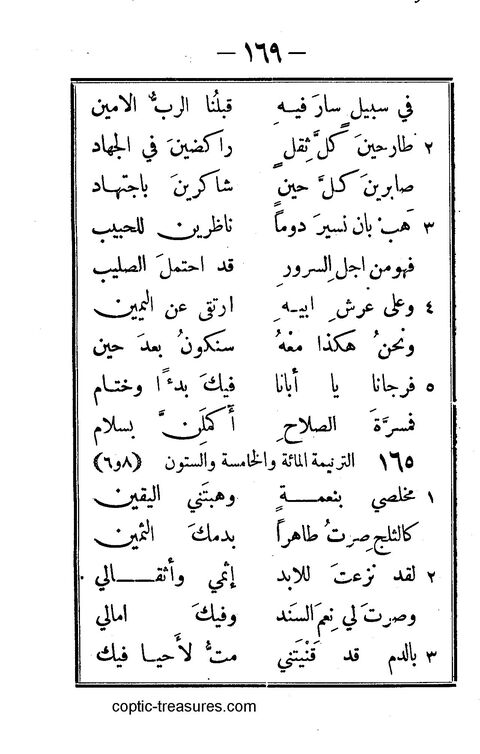 — ١٦٩ —
في سبيلٍ سارَ فيهِ قبلُنا الربُّ الامين
٢ طارحينَ كلَّ ثقلٍ راكضينَ في الجهاد
صابرينَ كلَّ حينٍ شاكرينَ باجتهاد
٣ هَبْ بان نسيرَ دوماً ناظرين للحبيب
فهو من اجل السرورِ قد احتملَ الصليب
٤ وعلى عرشِ ابيهِ ارتقى عن اليمين
ونحنُ هكذا معْهُ سنكونُ بعدَ حين
٥ فرجانا يا أبانا فيكَ بدءًا وختام
فمسرَّةَ الصلاحِ أَكملَنَّ بسلام
١٦٥ الترنيمة المائة والخامسة والستون (٨و٦)
١ مخلصي بنعمةٍ وهبتَني اليقين
كالثلجِ صرتُ طاهراً بدمكَ الثمين
٢ لقد نزعتَ للابد إثمي وأثقالي
وصرتَ لي نِعمَ السَند وفيكَ امالي
٣ بالدم قد قَنَيتَني متُّ لأَحيا فيك
coptic-treasures.com